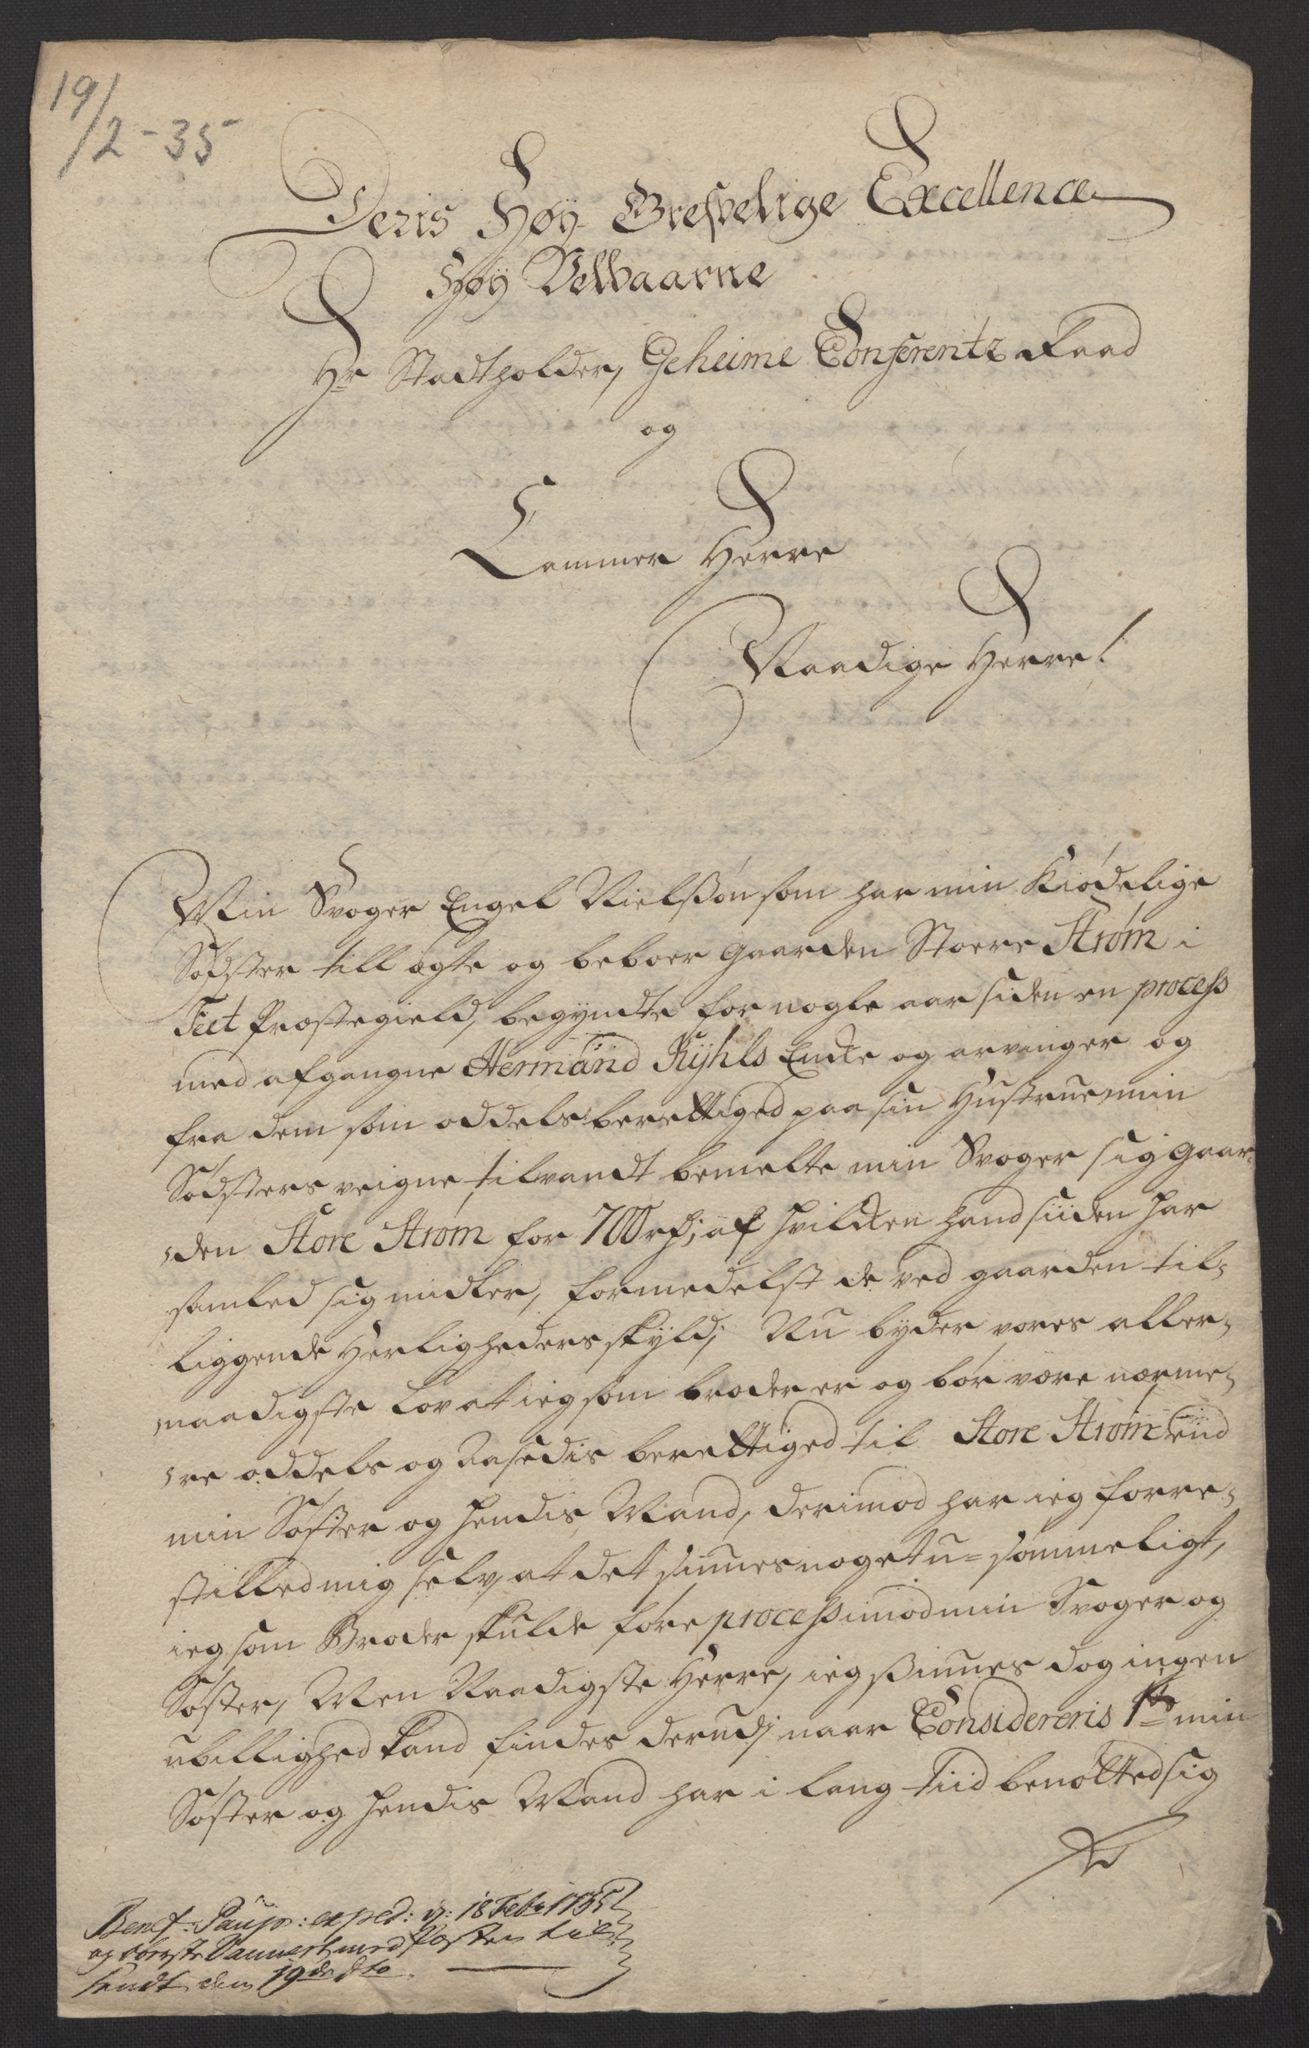 19/2-35
Deris Høy Grefvelige Excellence
Høy Velbaarne
Hr Stadtholder, Geheime Conferentz Raad
og
Cammer Herre
Naadige Herre!
Min Svoger Engel Nielssøn som har min Kiødelige
Søster till ægte og beboer gaarden Stoere Strøm i
Feet Præstegield, begyndte for nogle aar siden en process
med afgangne Hermand Ryhls Encke og arvinger og
fra dem som oddelsberettiged paa sin Hustrue min
Søsters veigne tilvandt bemelte min Svoger sig gaar-
den Store Strøm for 700 rd; af hvilcken hand siiden har
samled sig midler, formedelst de ved gaarden til-
liggende Herligheders skyld; Nu byder vores aller-
naadigste Lov at ieg som broder er og bør være nærme-
re oddels og Aasædis berettiged til Store Strøm end
min Søster og hendis Mand, derimod har ieg forre-
stilled mig selv, at det siunes noget u-sømmeligt,
ieg som Broder skulde føre process imod min Svoger og
Søster, Men Naadigste Herre, ieg siunes dog ingen
ubillighed kand findes derudj naar Considereris 1te min
Søster og hendis Mand har i lang tiid benøtted sig
Benef: Paup: exped: d: 18 Feb: 1735
og med Posten til
sendt den 19de dto